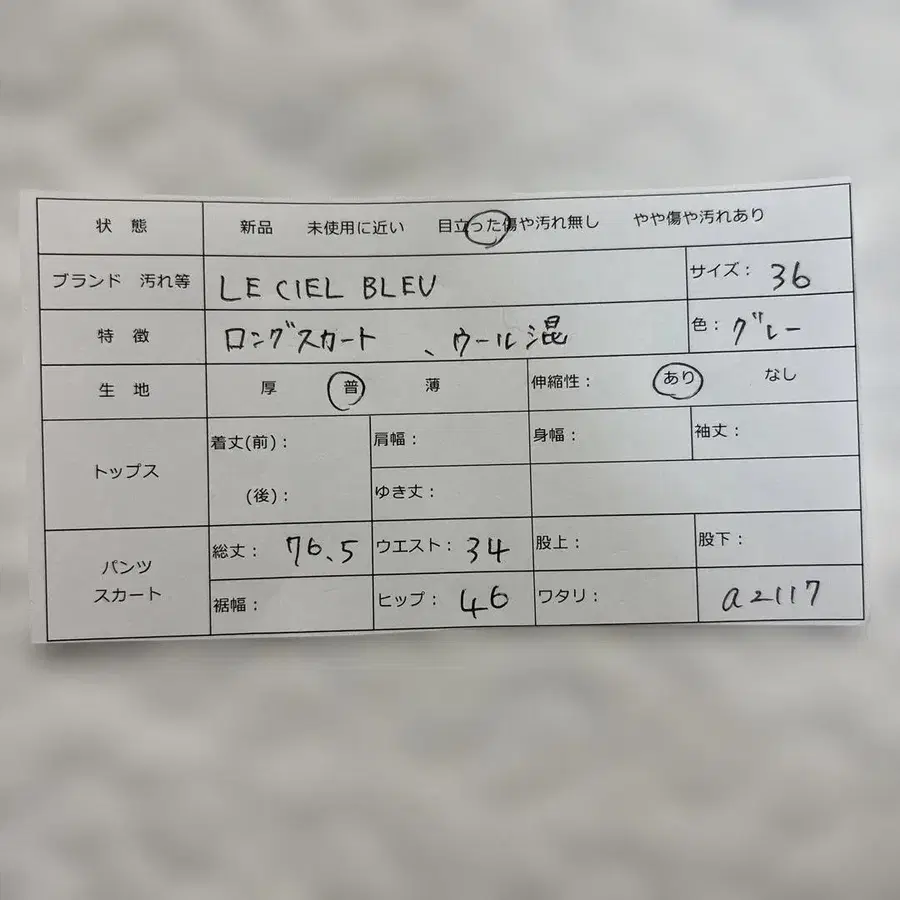 状 態 新品 未使用に近い 目立った傷や汚れ無し やや傷や汚れあり
ブランド 汚れ等 LE CIEL BLEU サイズ： 36
特 徴 ロングスカート 、ウール混 色： グレー
生 地 厚 普 薄 伸縮性： あり なし
トップス 着丈(前)： 肩幅： 身幅： 袖丈：
(後)： ゆき丈：
パンツ スカート 総丈： 76.5 ウエスト： 34 股上： 股下：
裾幅： ヒップ： 46 ワタリ： a2117